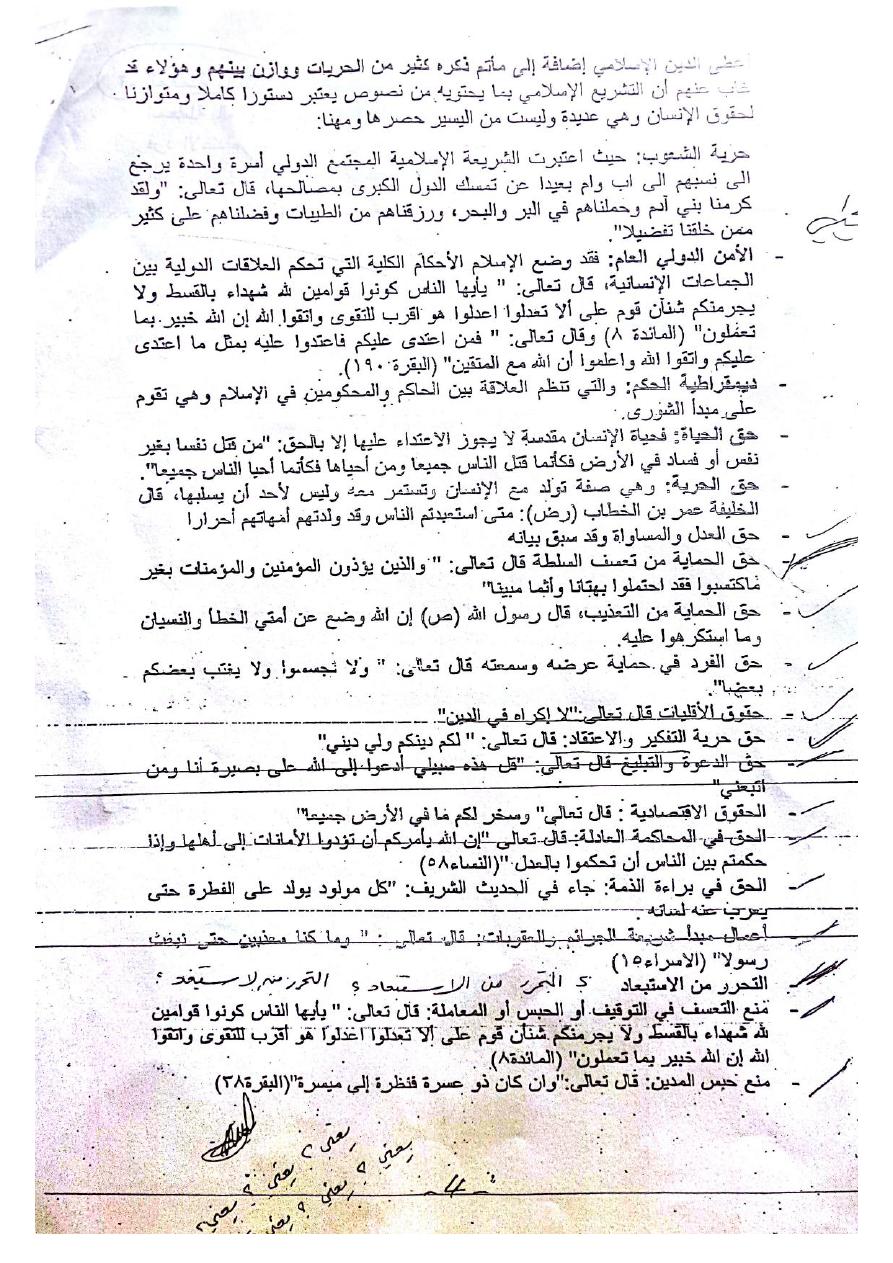 أعطى الدين الإسلامي إضافة إلى مأتم ذكره كثير من الحريات ووازن بينهم وهؤلاء قد
غاب عنهم أن التشريع الإسلامي بما يحتويه من نصوص يعتبر دستورا كاملا ومتوازنا
لحقوق الإنسان وهي عديدة وليست من اليسير حصرها ومهنا:
حرية الشعوب: حيث اعتبرت الشريعة الإسلامية المجتمع الدولي أسرة واحدة يرجع
الى نسبهم الى اب وام بعيدا عن تمسك الدول الكبرى بمصالحها، قال تعالى: "ولقد
كرمنا بني آدم وحملناهم في البر والبحر، ورزقناهم من الطيبات وفضلناهم على كثير
ممن خلقنا تفضيلا".
- الأمن الدولي العام: فقد وضع الإسلام الأحكام الكلية التي تحكم العلاقات الدولية بين
الجماعات الإنسانية، قال تعالى: " يأيها الناس كونوا قوامين لله شهداء بالقسط ولا
يجرمنكم شنأن قوم على ألا تعدلوا اعدلوا هو اقرب للتقوى واتقوا الله إن الله خبير بما
تعملون" (المائدة ٨) وقال تعالى: " فمن اعتدى عليكم فاعتدوا عليه بمثل ما اعتدى
عليكم واتقوا الله واعلموا أن الله مع المتقين" (البقرة ١٩٠).
- ديمقراطية الحكم: والتي تنظم العلاقة بين الحاكم والمحكومين في الإسلام وهي تقوم
على مبدأ الشورى.
- حق الحياة: فحياة الإنسان مقدسة لا يجوز الاعتداء عليها إلا بالحق: "من قتل نفسا بغير
نفس أو فساد في الأرض فكأنما قتل الناس جميعا ومن أحياها فكأنما أحيا الناس جميعا".
- حق الحرية: وهي صفة تولد مع الإنسان وتستمر معه وليس لأحد أن يسلبها، قال
الخليفة عمر بن الخطاب (رض): متى استعبدتم الناس وقد ولدتهم أمهاتهم أحرارا
- حق العدل والمساواة وقد سبق بيانه
- حق الحماية من تعسف السلطة قال تعالى: " والذين يؤذون المؤمنين والمؤمنات بغير
ماكتسبوا فقد احتملوا بهتانا وأثما مبينا"
- حق الحماية من التعذيب، قال رسول الله (ص) إن الله وضع عن أمتي الخطأ والنسيان
وما استكرهوا عليه.
- حق الفرد في حماية عرضه وسمعته قال تعالى: " ولا تجسسوا ولا يغتب بعضكم
بعضا".
- حقوق الأقليات قال تعالى:"لا إكراه في الدين"
- حق حرية التفكير والاعتقاد: قال تعالى: " لكم دينكم ولي ديني"
- حق الدعوة والتبليغ قال تعالى: "قل هذه سبيلي أدعوا إلى الله على بصيرة أنا ومن
اتبعني"
- الحقوق الاقتصادية : قال تعالى" وسخر لكم ما في الأرض جميعا"
- الحق في المحاكمة العادلة: قال تعالى "إن الله يأمركم أن تؤدوا الأمانات إلى أهلها وإذا
حكمتم بين الناس أن تحكموا بالعدل "(النساء٥٨)
- الحق في براءة الذمة: جاء في الحديث الشريف: "كل مولود يولد على الفطرة حتى
يعرب عنه لسانه .
أعمال مبدأ شريعة الجرائم والعقوبات: قال تعالى : " وما كنا معذبين حتى نبعث
رسولا" (الاسراء١٥)
التحرر من الاستبعاد ؟ التحرر من الاستبعاد ؟ التحرر من
- منع التعسف في التوقيف أو الحبس أو المعاملة: قال تعالى: " يأيها الناس كونوا قوامين
لله شهداء بالقسط ولا يجرمنكم شنأن قوم على ألا تعدلوا اعدلوا هو أقرب للتقوى واتقوا
الله إن الله خبير بما تعملون" (المائدة٨)
- منع حبس المدين: قال تعالى:"وان كان ذو عسرة فنظرة إلى ميسرة"(البقرة٣٨)
يعني ؟ يعني ؟ يعني
يعني ؟ يعني ؟ يعني